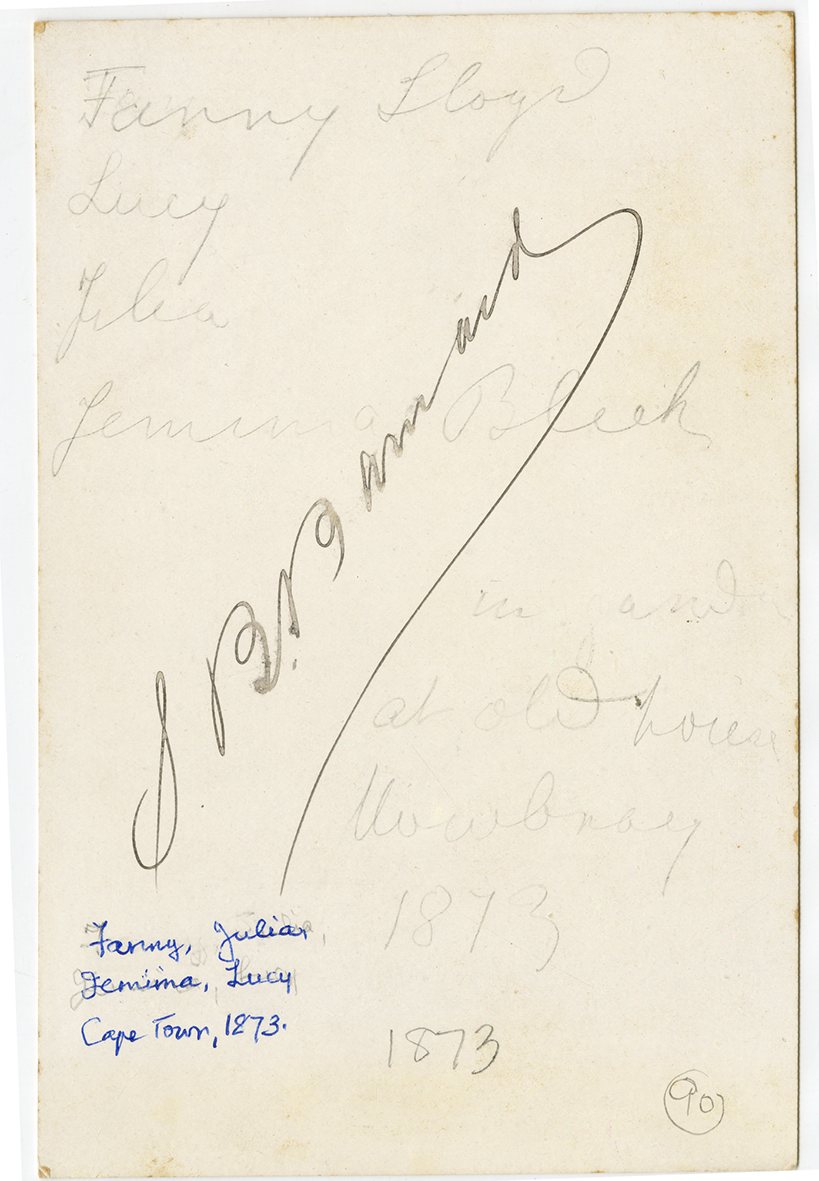 Fanny Lloyd
Lucy
Julia
Jemima Bleek
S. B. Barnard
in garden
at old house
Mowbray
1873
Fanny, Julia,
Jemima, Lucy
Cape Town, 1873.
1873
90